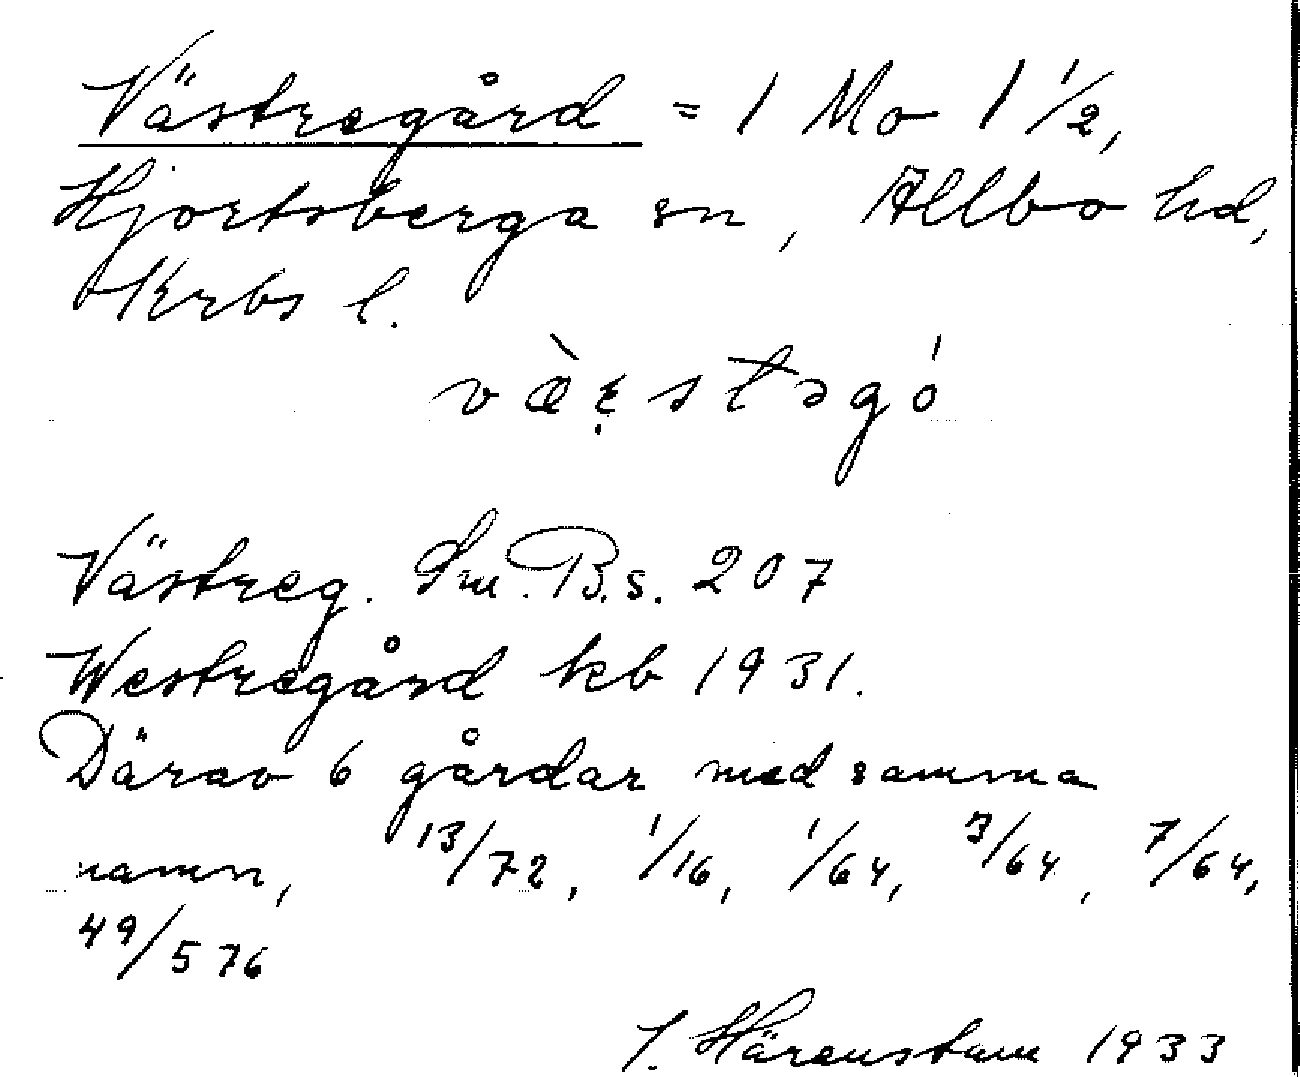 Västregård = 1 Mo 1 1/2,
Hjortsberga sn, Allbo hd,
Krbs l.
Västreg. Sm. B.s. 207
Westregård kb 1931.
Därav 6 gårdar med samma
namn, 13/72, 1/16, 1/64, 3/64, 7/64,
49/576
J. Härenstam 1933